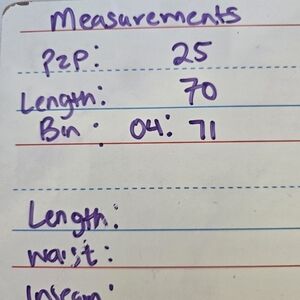 Measurements
P2P: 25
Length: 70
Bin: 04: 71
Length:
Waist:
Inseam: